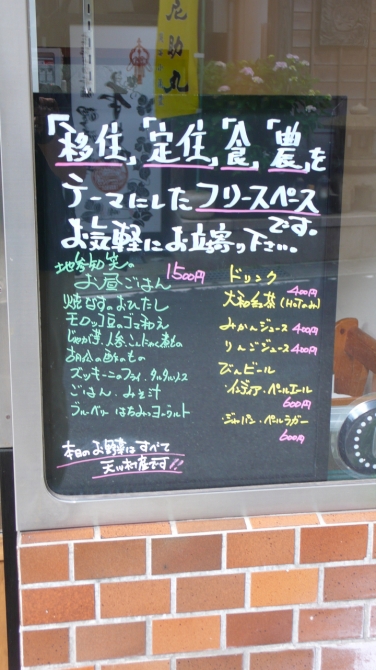 尼助丸
「移住」「定住」「食」「農」を
テーマにしたフリースペース
です。
お気軽にお立寄り下さい…
お昼ごはん 1500円
焼なすのおひたし
モロッコ豆のゴマ和え
ズッキーニのフライ・タルタルソース
ごはん・みそ汁
ブルーベリーはちみつヨーグルト
本日のお野菜はすべて
天川村産です!!
ドリンク
大和紅茶(Hotのみ) 400円
みかんジュース 400円
りんごジュース 400円
びんビール
・インディア・ペールエール
600円
・ジャパン・ペールラガー
600円